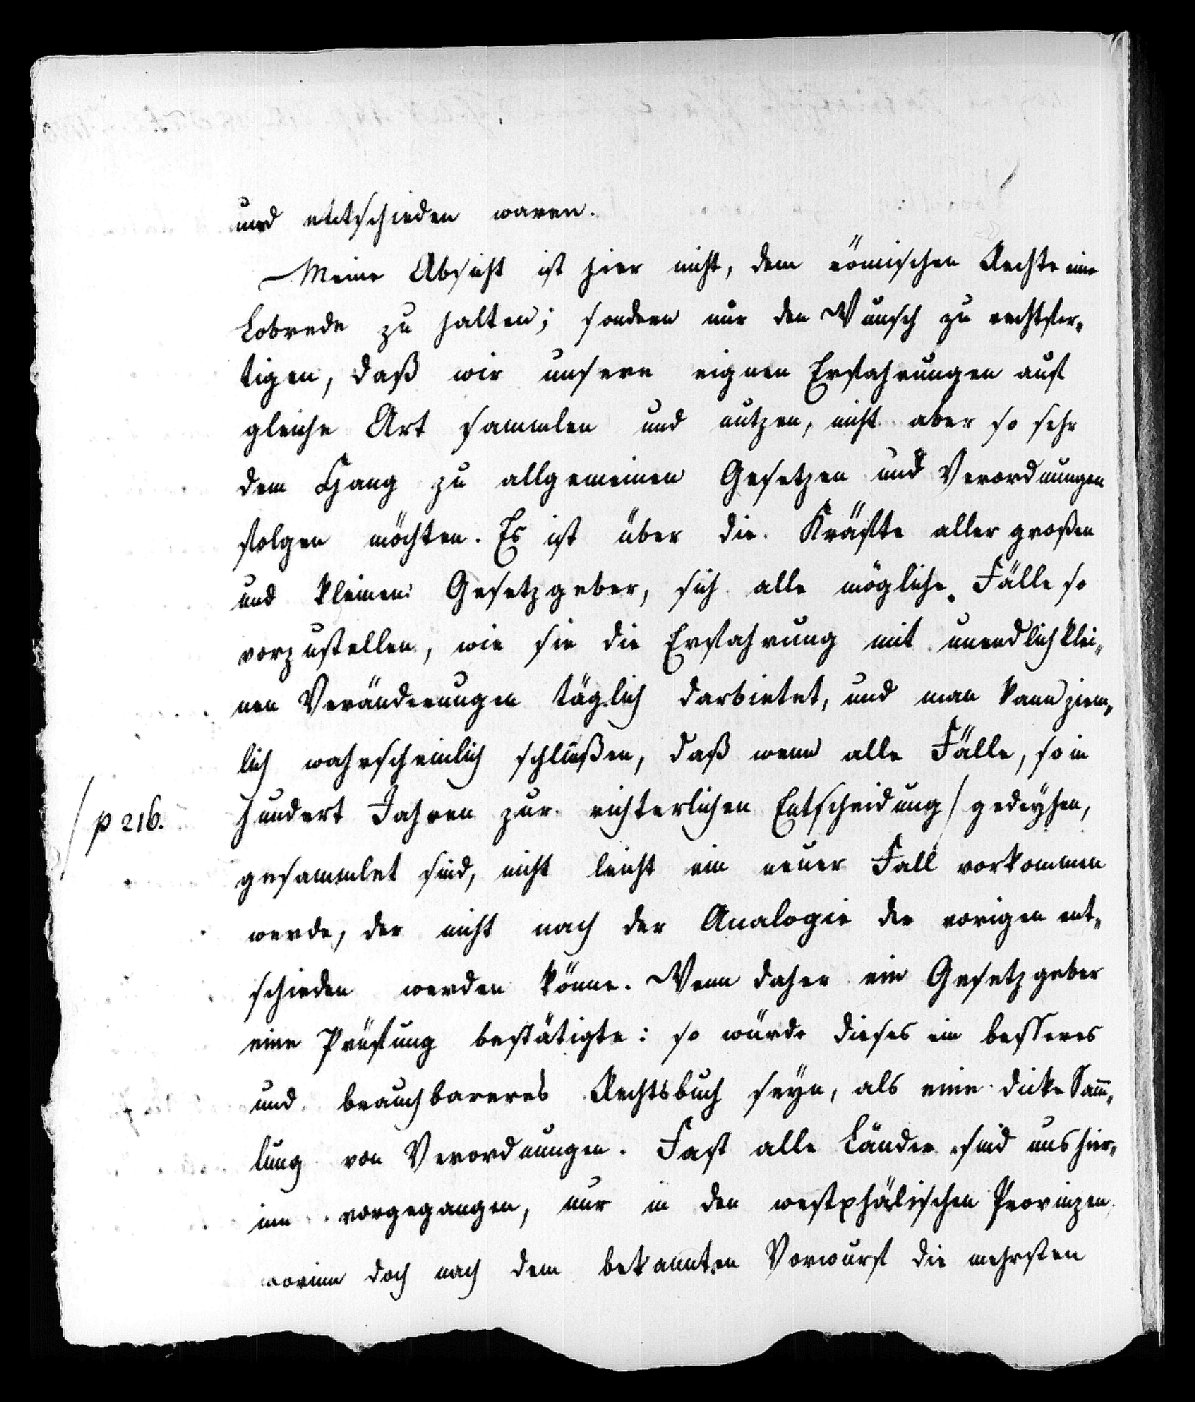 und entschieden waren.
Meine Absicht ist hier nicht, dem römischen Rechte eine
Lobrede zu halten; sondern nur den Wunsch zu rechtfer-
tigen, daß wir unsere eignen Erfahrungen auf
gleiche Art sammlen und nutzen, nicht aber so sehr
dem Hang zu allgemeinen Gesetzen und Verordnungen
folgen möchten. Es ist über die Kräfte aller großen
und kleinen Gesetzgeber, sich alle mögliche Fälle so
vorzustellen, wie sie die Erfahrung mit unendlich klei-
nen Veränderungen täglich darbietet, und man kann ziem-
lich wahrscheinlich schließen, daß wenn alle Fälle, so in
hundert Jahren zur richterlichen Entscheidung / gedeyhen,
/ p 216.
gesammlet sind, nicht leicht ein neuer Fall vorkommen
werde, der nicht nach der Analogie der vorigen ent-
schieden werden könne. Wenn daher ein Gesetzgeber
eine Prüfung bestätigte: so würde dieses ein besseres
und brauchbareres Rechtsbuch seyn, als eine dicke Sam̅-
lung von Verordnungen. Fast alle Länder sind uns hier-
inn vorgegangen, nur in den westphälischen Provinzen
worinn doch nach dem bekannten Vorwurf die mehrsten